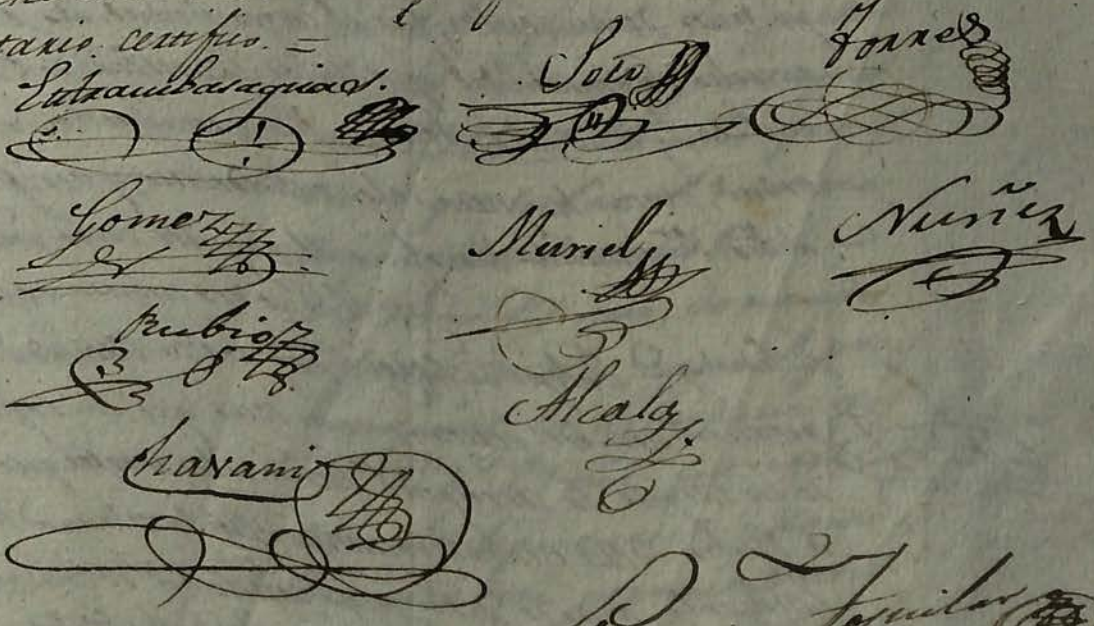 tario certifico =
Entrambasaguas. Soto Torres
Gomez Muriel Nuñez
Rubio
Alcala
Charani
Aguilar